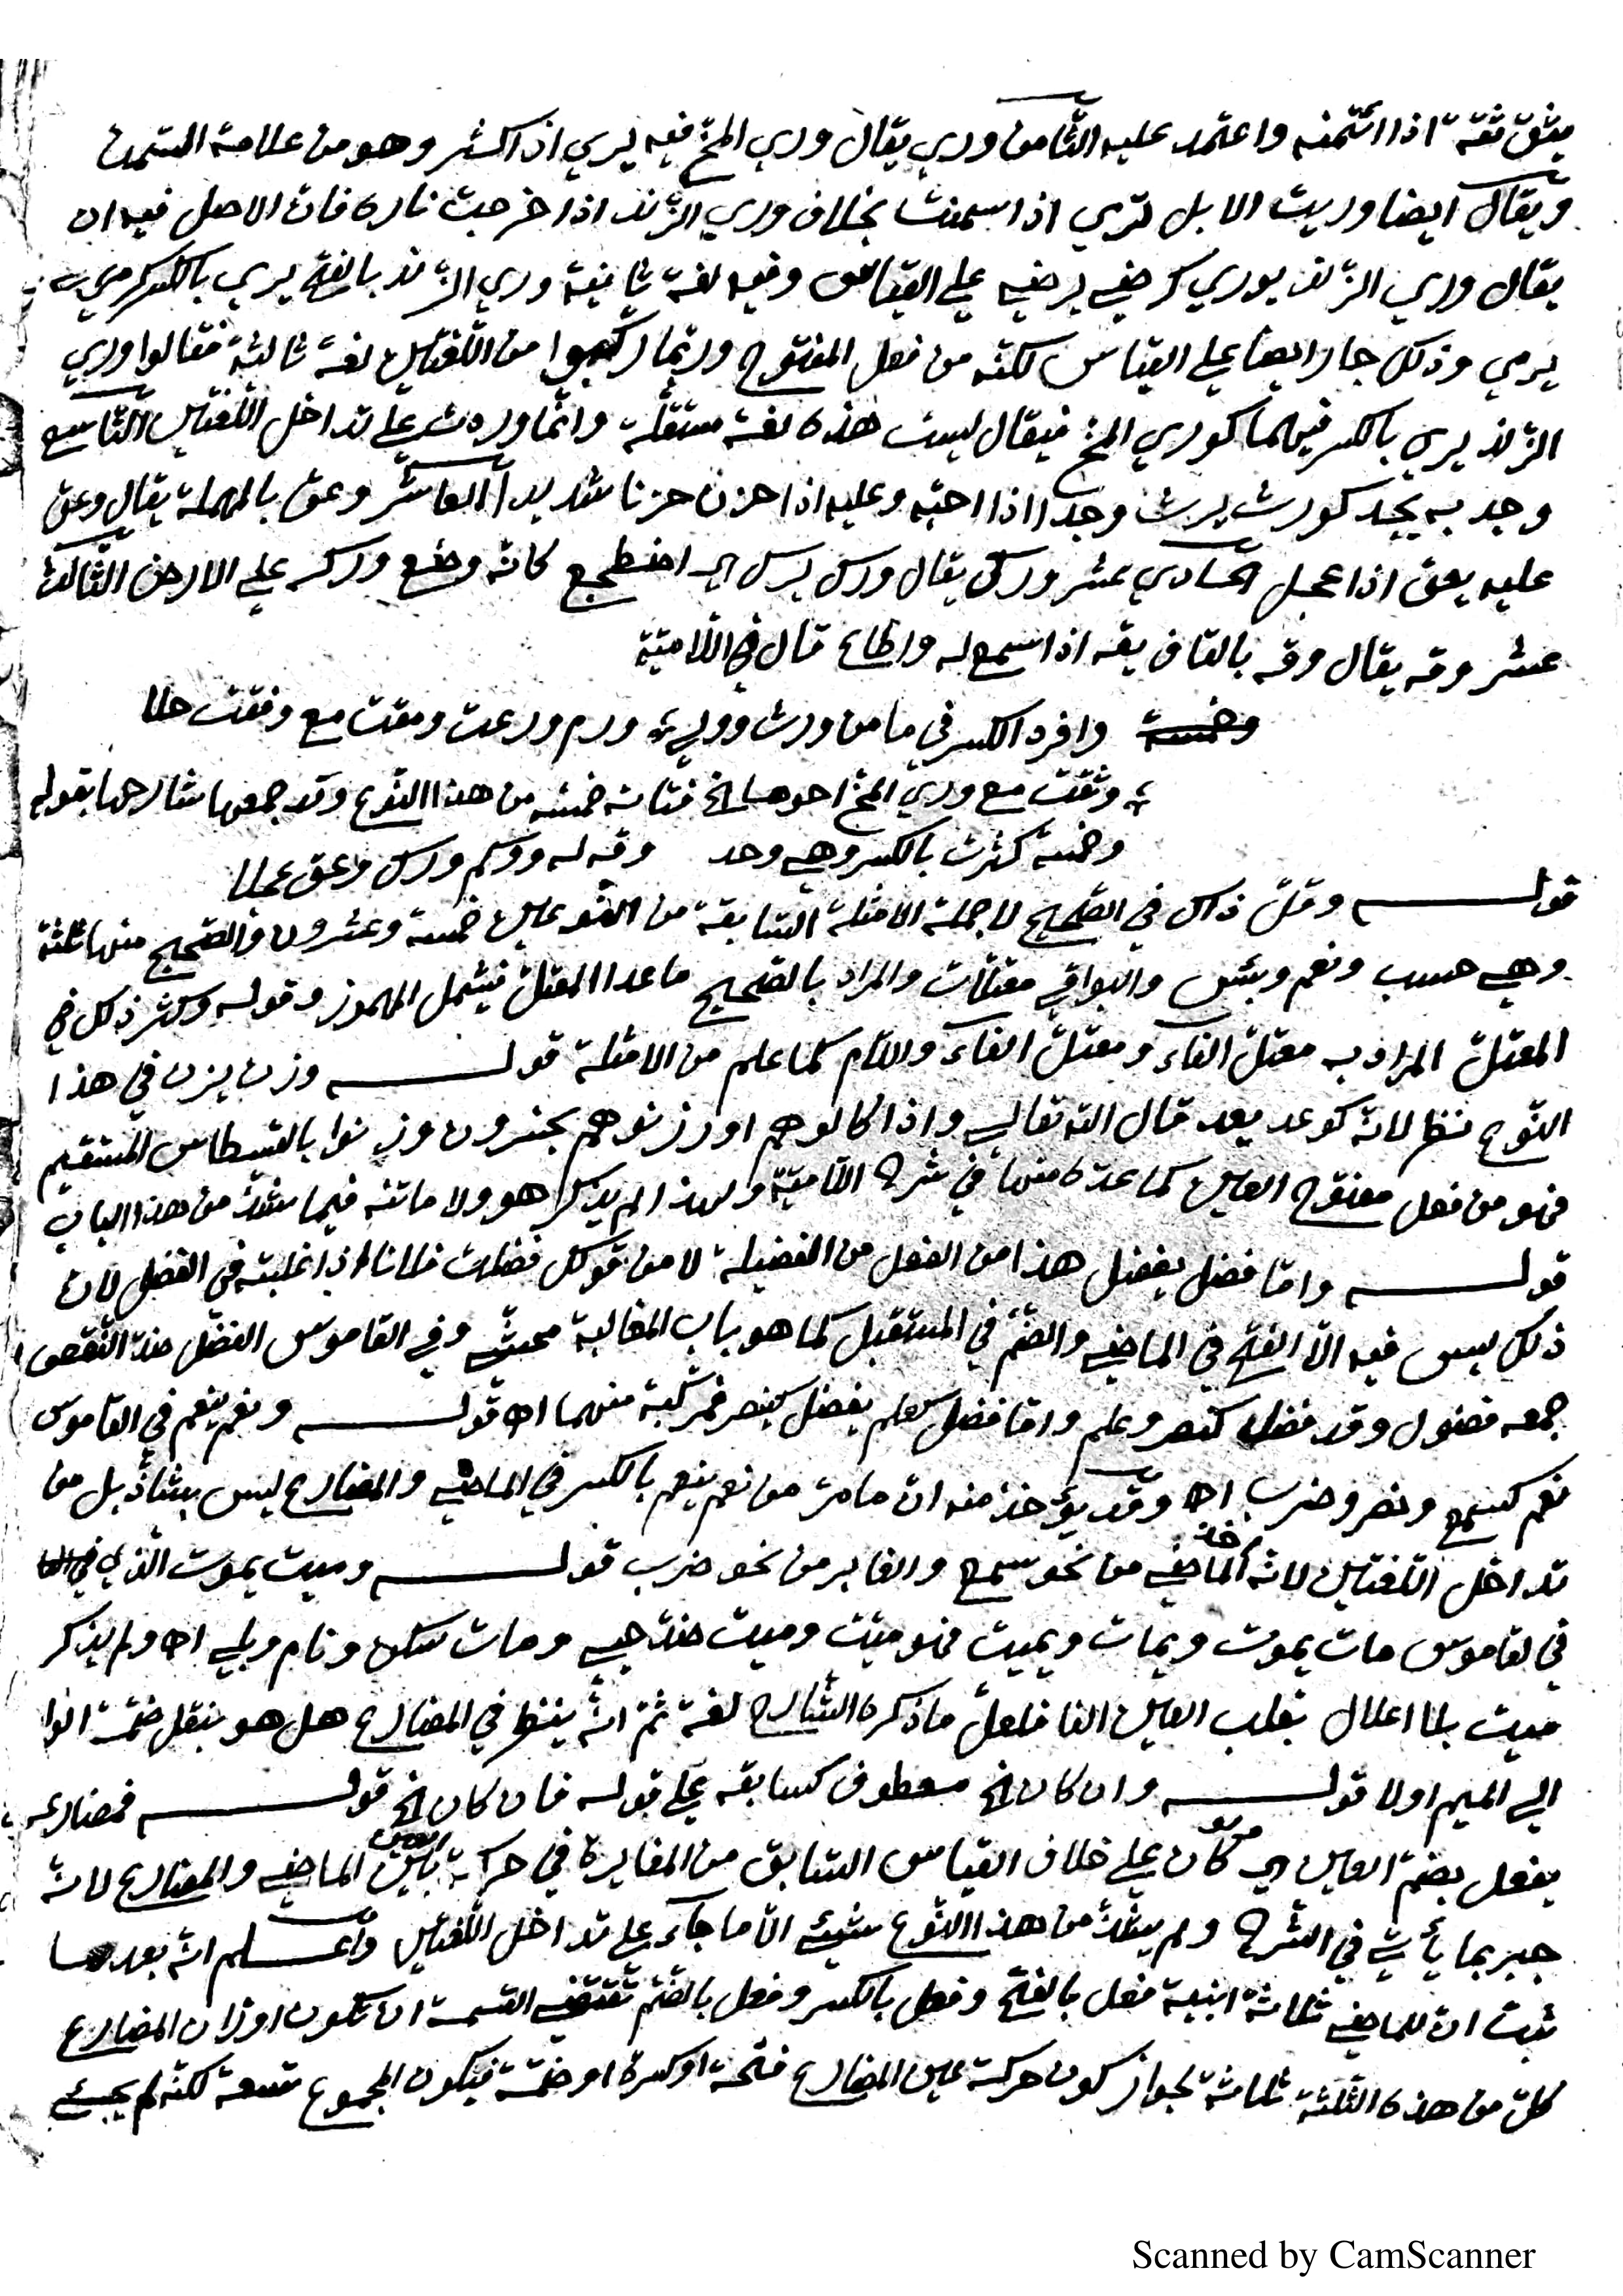 يثق ثقة اذا ائتمنه واعتمد عليه الثامن وري يقال وري المخ فيه يري اذا اكتنز وهو من علامة السمن
ويقال ايضا وريت الابل تري اذا سمنت بخلاف وري الزند اذا خرجت ناره فان الاصل فيه ان
يقال وري الزند يوري كرضي يرضي علي القياس وفيه لغة ثانية وري الزند بالفتح يري بالكسر كرمي
يرمي وذلك جار ايضا علي القياس لكنه من فعل المفتوح وربما ركبوا من اللغتين لغة ثالثة فقالوا وري
الزند يري بالكسر فيهما كوري المخ فيقال ليست هذه لغة مستقلة وانما وردت علي تداخل اللغتين التاسع
وجد به يجد كورث يرث وجدا اذا احبه وعليه اذا حزن حزنا شديدا العاشر وعق بالمهملة يقال وعق
عليه يعق اذا عجل الحادي عشر ورك يقال ورك يرك اي اضطجع كانه وضع وركه علي الارض الثالث
عشر وقه يقال وقه بالقاف يقه اذا سمع له واطاع قال في اللامية
وافرد الكسر في ما من ورث وولي ورم ورعت ومقت مع وفقت حلا
وثقت مع وري المخ احوها الخ فتانه خمسة من هذا النوع وقد جمعها شارحها بقوله
وخمسة كثرت بالكسر وهي وجد وقه له ووكم ورك وعق عجلا
قوله وقل ذلك في الصحيح لا جملة الامثلة السابقة من النوعين خمسة وعشرون والصحيح منها ثلثة
وهي حسب ونعم وبئس والبواقي معتلات والمراد بالصحيح ماعدا المعتل فيشمل المهموز وقوله وكثر ذلك في
المعتل المراد به معتل الفاء ومعتل الفاء واللام كما علم من الامثلة قوله وزن يزن في هذا
النوع نظر لانه كوعد يعد قال الله تعالي واذا كالوهم او وزنوهم يخسرون وزنوا بالقسطاس المستقيم
فهو من فعل مفتوح العين كما عده منها في شرح اللامية ولهذا لم يذكر هو ولا ماتنه فيما شذ من هذا الباب
قوله واما فضل يفضل هذا من الفضل من الفضيلة لا من قولك فضلت فلانا اذا غلبته في الفضل لان
ذلك ليس فيه الا الفتح في الماضي والضم في المستقبل كما هو باب المغالبة محشي وفي القاموس الفضل ضد النقص
جمعه فضول وقد فضل كنصر وعلم واما فضل كعلم يفضل كينصر فمركبة منهما اه قوله ونعم ينعم في القاموس
نعم كسمع ونصر وضرب اه وقد يؤخذ منه ان ما مر من نعم ينعم بالكسر في الماضي والمضارع ليس بشاذ بل من
تداخل اللغتين لانه اخذ الماضي من نحو سمع والغابر من نحو ضرب قوله وميت يموت الذي في
في لقاموس مات يموت ويمات ويميت فهو ميت وميت ضد حيي ومات سكن ونام وبلي اه ولم يذكر
ميت بلا اعلال بقلب العين الفا فلعل ما ذكره الشارح لغة ثم انه ينظر في المضارع هل هو بنقل ضمة الواو
الي الميم اولا قوله وان كان الخ معطوف كسابقه علي قوله فان كان الخ قوله فمضارعه
يفعل بضم العين اي كان علي خلاف القياس السابق من المغايرة في حركة العين بين الماضي والمضارع لانه
جبر بما يأتي في الشرح ولم يشذ من هذا النوع شيئ الا ما جاء علي تداخل اللغتين واعلم انه بعد ما
ثبت ان للماضي ثلاثة ابنية فعل بالفتح وفعل بالكسر وفعل بالضم تقتضي القسمة ان تكون اوزان المضارع
كل من هذه الثلثة ثلاثة لجواز كون حركة عين المضارع فتحة او كسرة او ضمة فيكون المجموع تسعة لكنه لم يجيئ
Scanned by CamScanner